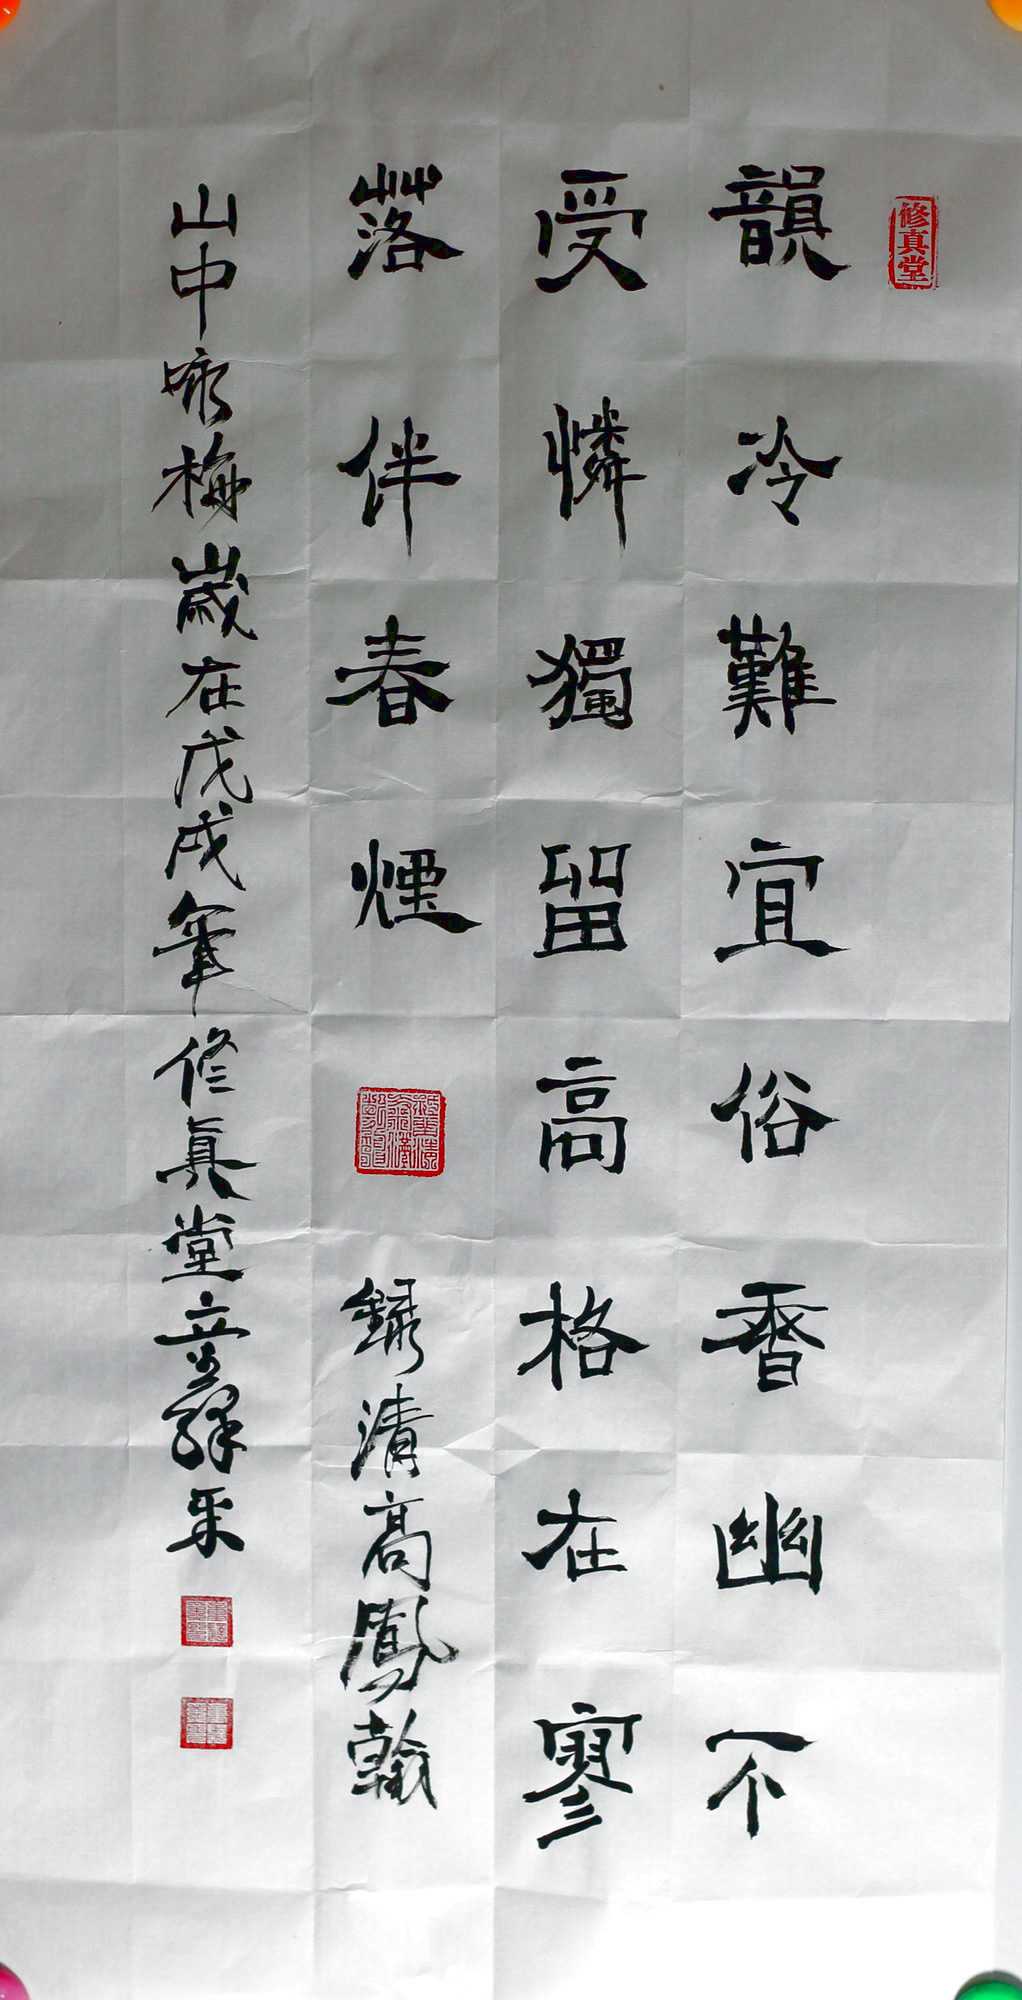 修真堂
韻冷難宜俗香幽不
受憐獨留高格在寥
落伴春煙
錄清高鳳翰
山中咏梅歲在戊戌年修真堂主人釋采